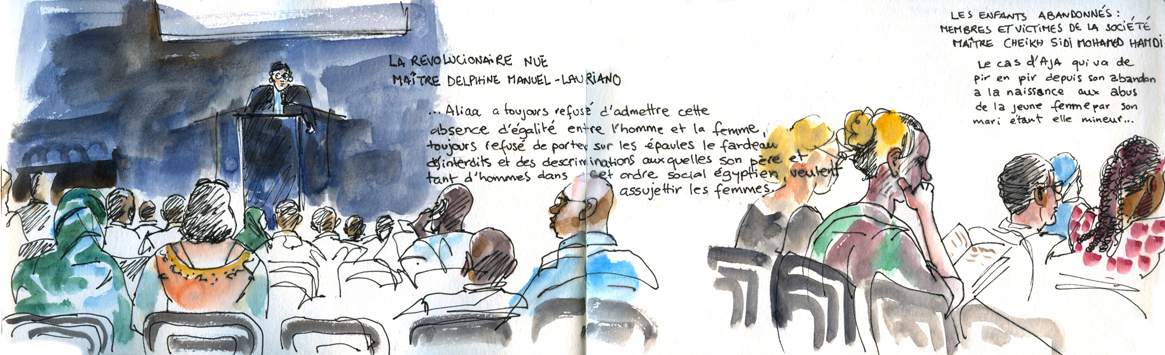 LA REVOLUCIONAIRE NUE
MAÎTRE DELPHINE MANUEL-LAURIANO
... Aliaa a toujours refusé d'admettre cette
absence d'égalité entre l'homme et la femme,
toujours refusé de porter sur les épaules le fardeau
d'interdits et des descriminations auxquelles son père et
tant d'hommes dans cet ordre social égyptien, veulent
assujettir les femmes...
LES ENFANTS ABANDONNÉS :
MEMBRES ET VICTIMES DE LA SOCIÉTÉ
MAÎTRE CHEIKH SIDI MOHAMED HAMDI
Le cas d'AJA qui va de
pir en pir depuis son abandon
a la naissance aux abus
de la jeune femme par son
mari étant elle mineur...